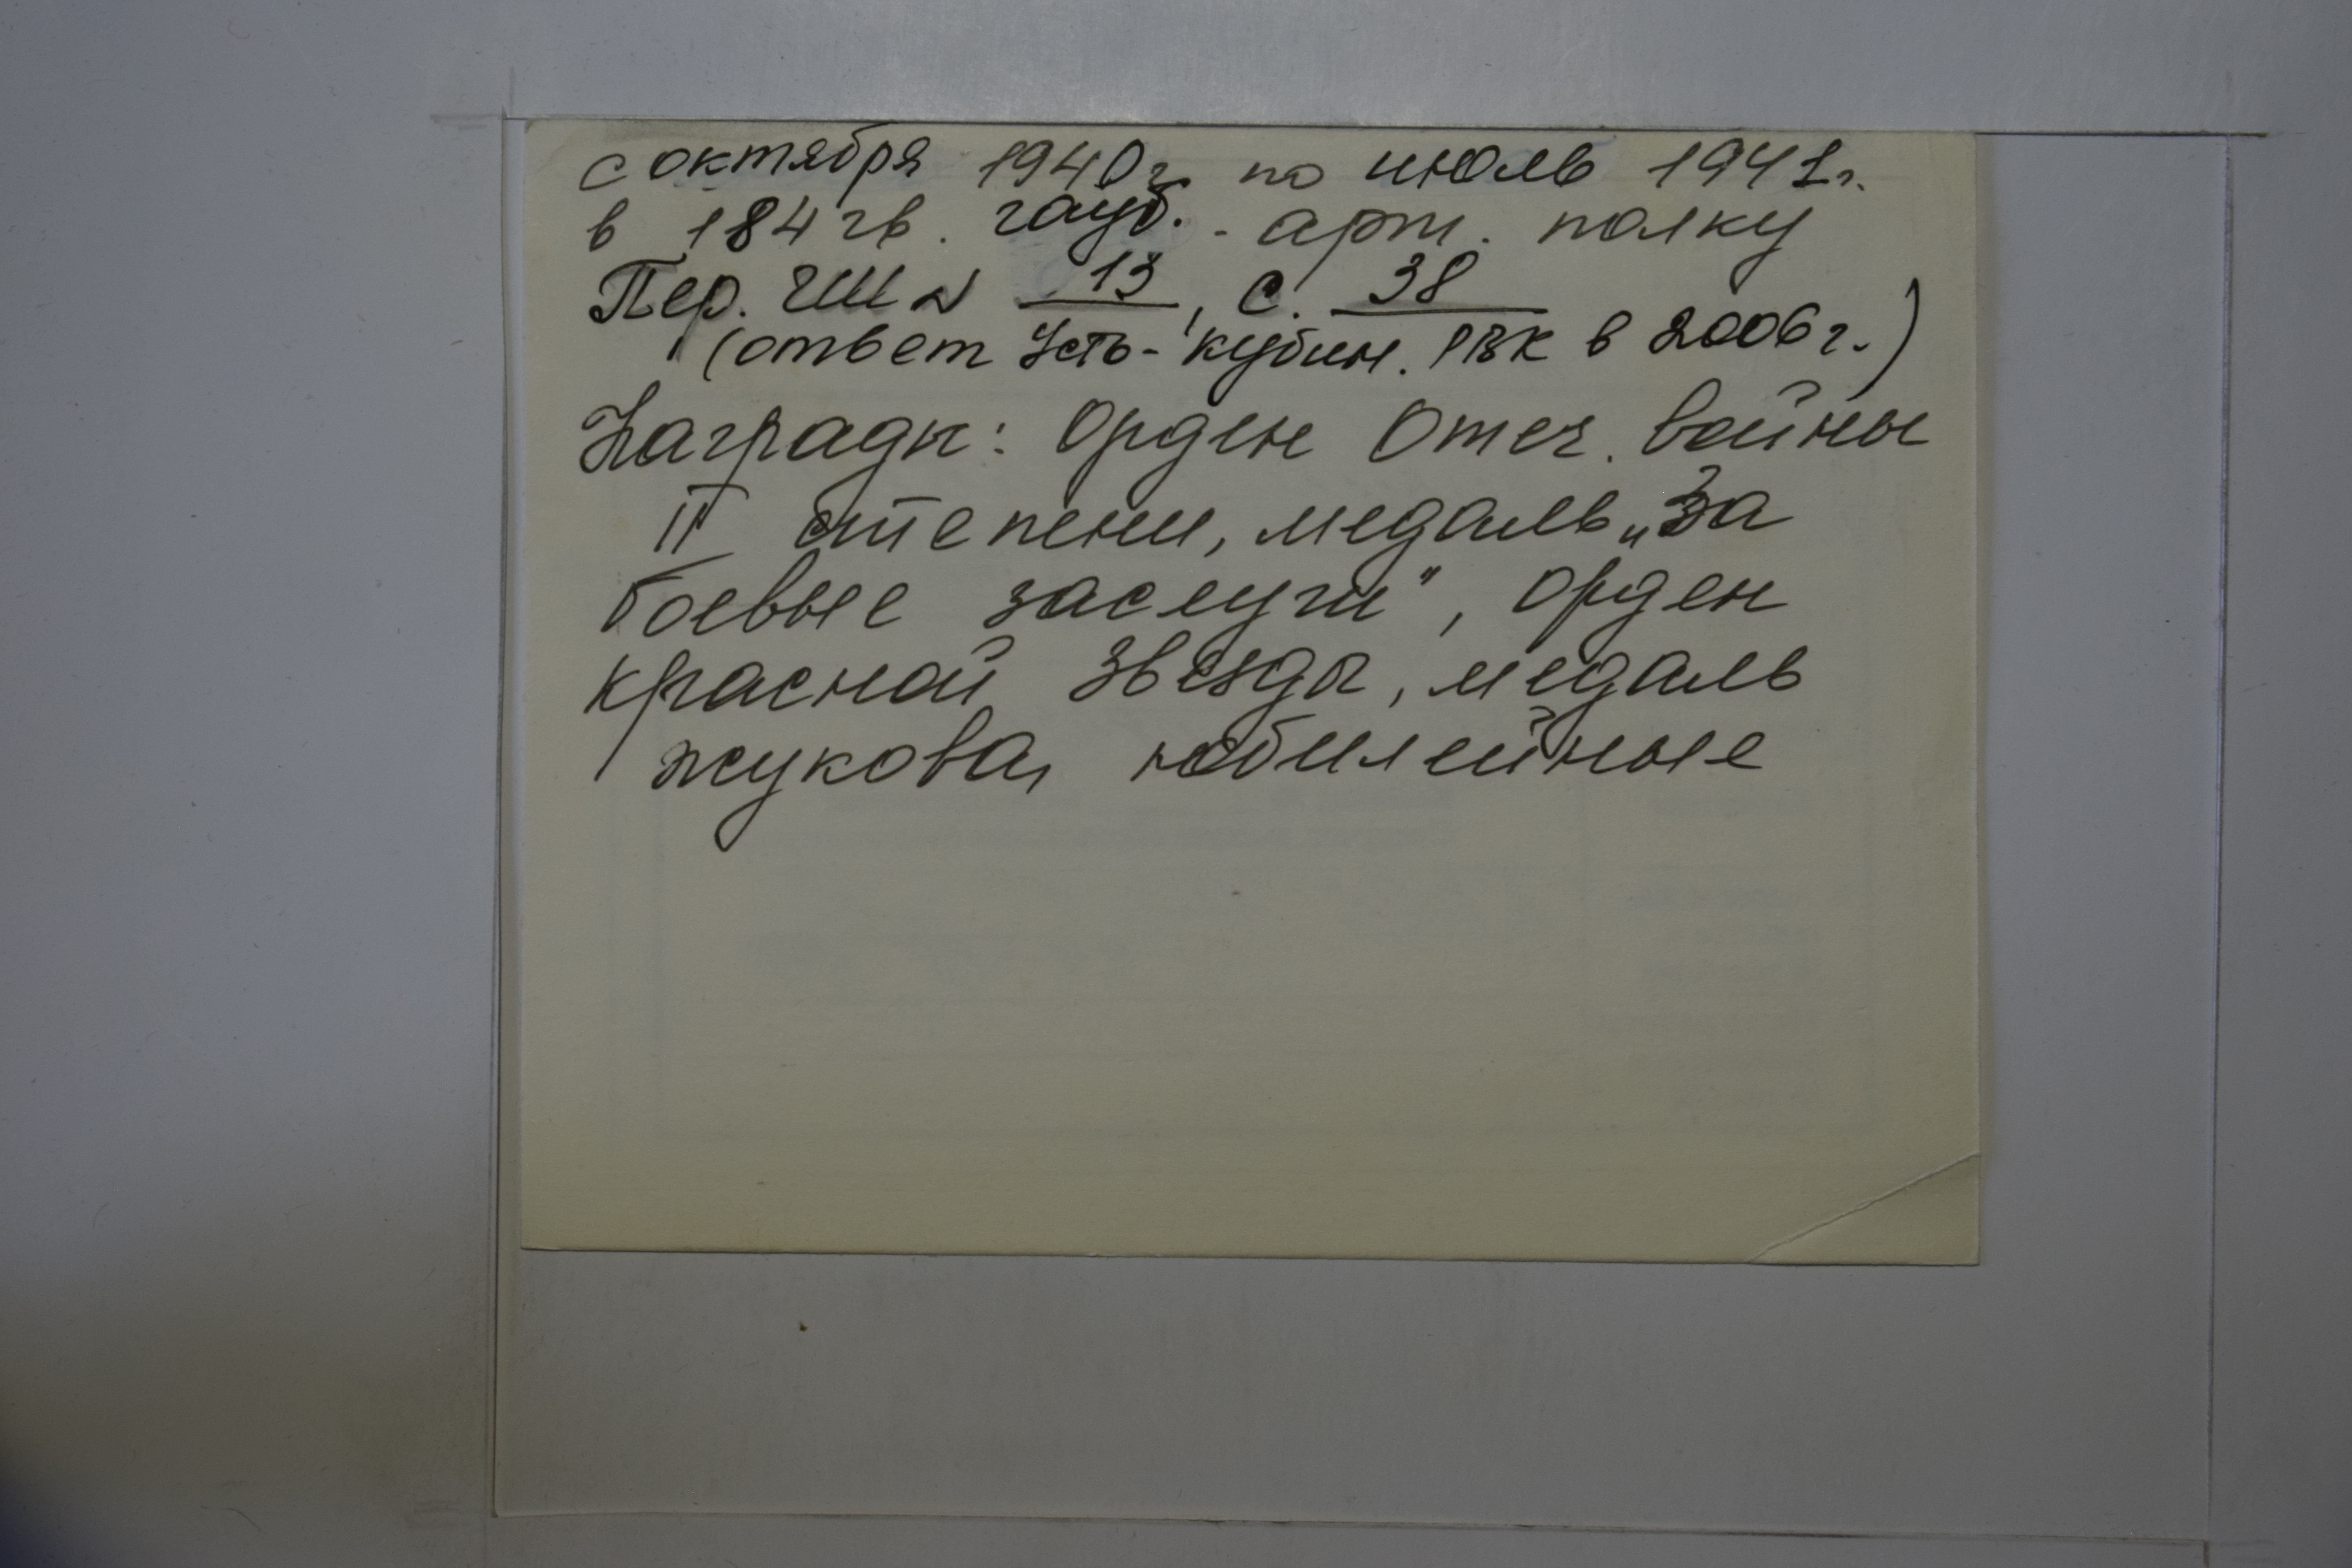 с октября 1940г. по июль 1941г.
в 184 гв. гауб. - арт. полку
Пер. ГШ № 13, с. 38
(ответ Усть-Кубин. РВК в 2006 г.)
Награды: Орден Отеч. войны
II степени, медаль „За
боевые заслуги", орден
Красной Звезды, медаль
Жукова, юбилейные